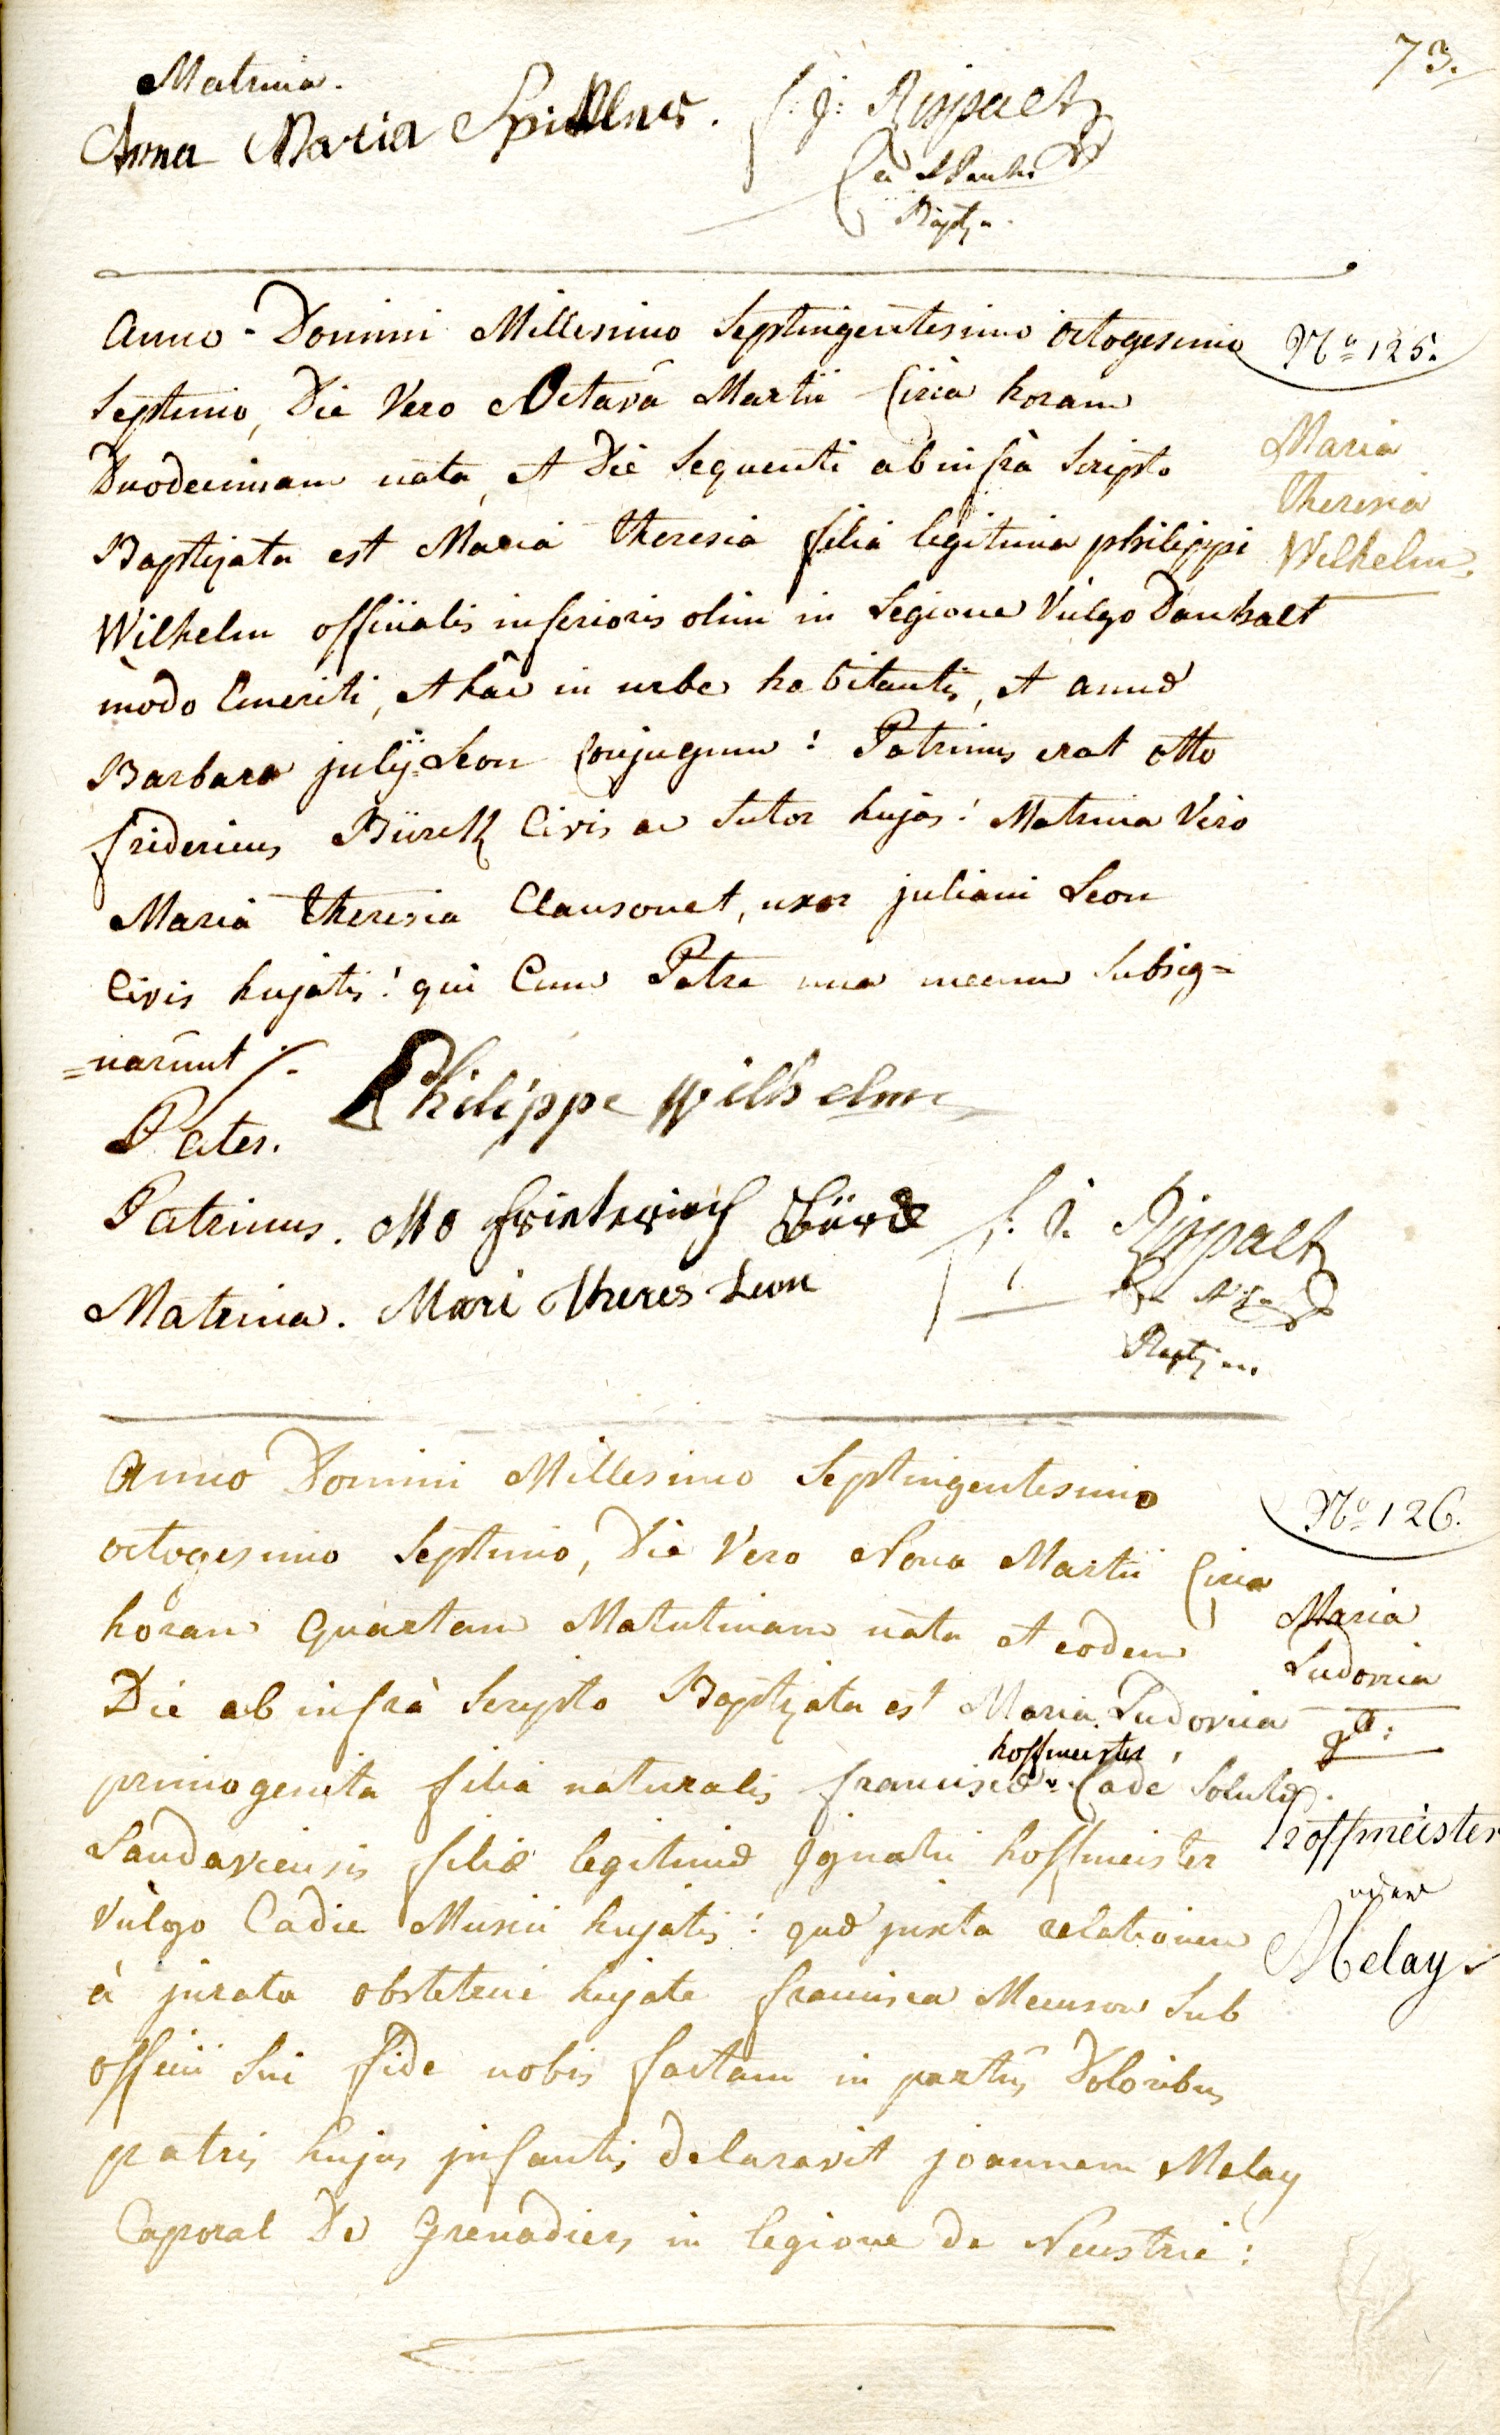 73.
Matrina.
Anna Maria Spittler. f: j: Rispalt
Baptz.
Anno Domini Millesimo Septingentesimo octogesimo
Septimo, Die Vero Octavâ Martii Circa horam
Duodecimam nata, et Die Sequenti ab infrà Scripto
Baptizata est Maria Theresia filia legitima philippi
Wilhelm officialis inferioris olim in Legione Vulgo Danhalt
modo Emeriti, et hâc in urbe habitantis, et annæ
Barbaræ julij Leon Conjugum: Patrinus erat otto
fridericus Bürck Civis ac Sutor hujas: Matrina Vero
Maria Theresia Clausonet, uxor juliani Leon
Civis hujatis: qui Cum Patre una mecum Subsig=
=narunt ⁒
No 125.
Maria
Theresia
Wilhelm.
Pater. Philippe Wilhelm
Patrinus. Otto friederich Bürck f: j: Rispalt
Matrina. Mari Theres Leon
Baptzans
Anno Domini Millesimo Septingentesimo
octogesimo Septimo, Die Vero Nona Martii Circa
horam Quartam Matutinam nata et eodem
Die ab infrà Scripto Baptizata est Maria Ludovica
hoffmeister
primogenita filia naturalis franciscæ Cadé Solutæ
Landaviensis filiæ legitimæ Ignatii hoffmeister
Vulgo Cadie Musici hujatis: quæ juxta relationem
à jurata obstetrici hujate francisca Meunson Sub
officii Sui fide nobis factam in partûs Doloribus
patris hujus jnfantis Delaravit joannem Melay
Caporal De Grenadiers in legione de Neustrie:
No 126.
Maria
Ludovica
hoffmeister
Melay